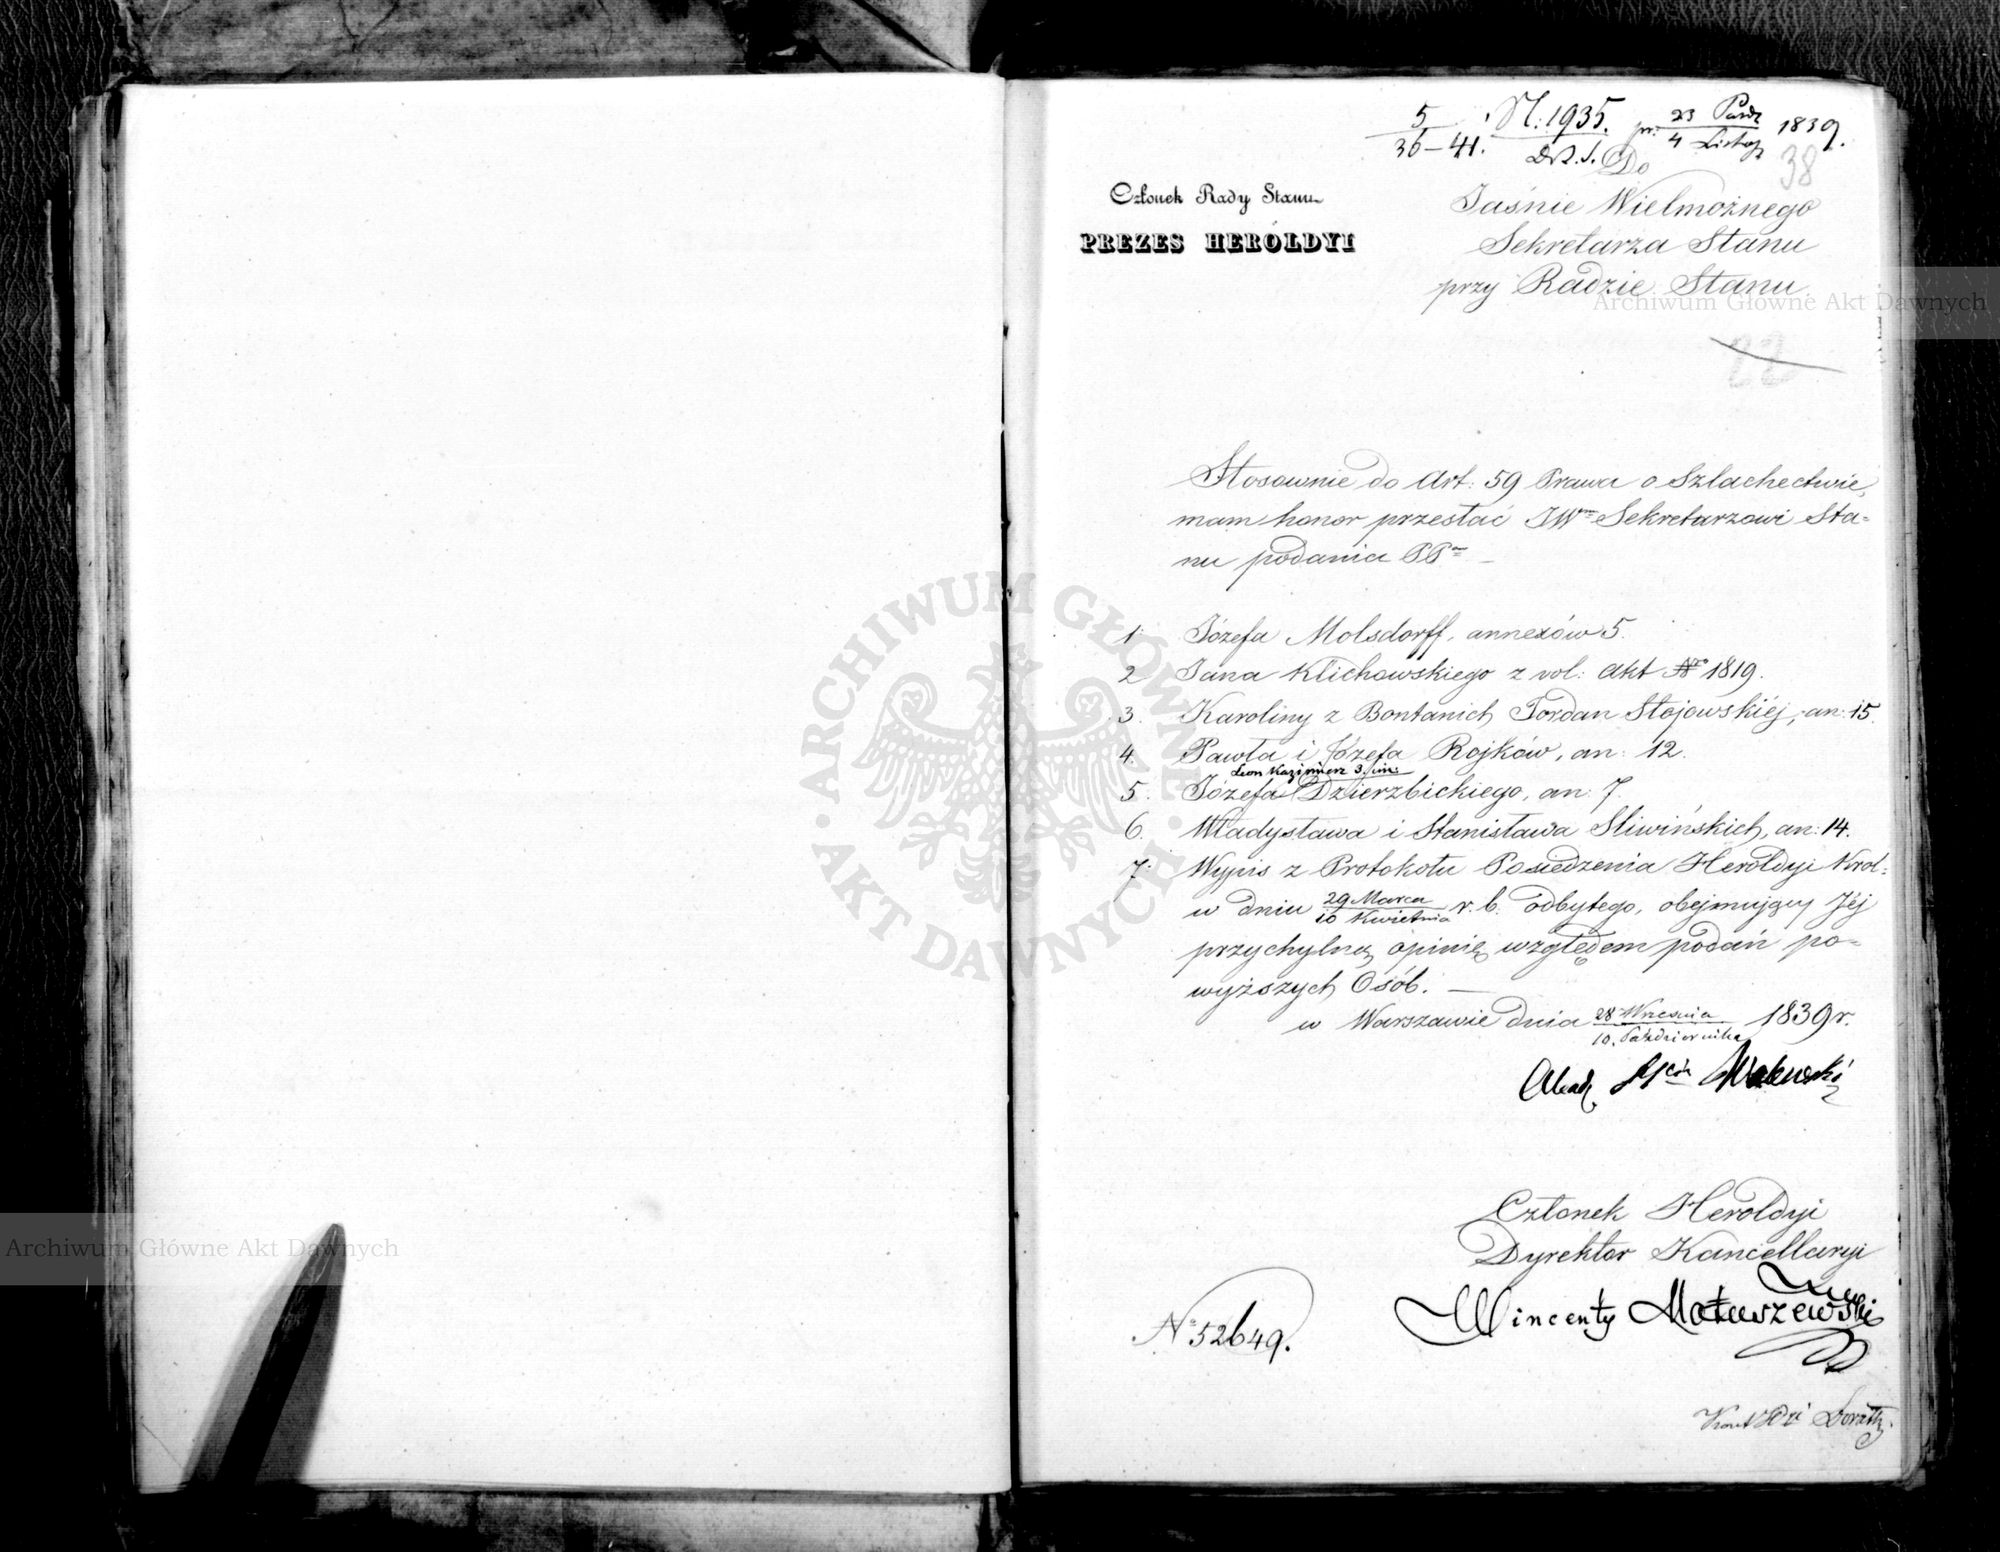 5
36–41.
N: 1935.
Dz. I.
pr. 23 Paźdz
4 Listop
1839.
38
Członek Rady Stanu
PREZES HEROLDYI
Do
Jaśnie Wielmożnego
Sekretarza Stanu
przy Radzie Stanu.
Archiwum Główne Akt Dawnych
Stosownie do Art: 59 Prawa o Szlachectwie,
mam honor przesłać JWmu Sekretarzowi Sta=
nu podania PPm
1. Józefa Molsdorff, annexów 5.
2 Jana Klichowskiego z vol: akt Nro 1819.
3. Karoliny z Bontanich Jordan Stojowskiéj, an: 15.
4. Pawła i Józefa Rojków, an: 12.
Leon Kazimierz 3. im:
5. Józefa Dzierzbickiego, an: 7.
6. Władysława i Stanisława Sliwińskich, an: 14.
7. Wypis z Protokołu Posiedzenia Heroldyi Król:
w dniu 29 Marca
10 Kwietnia r. b. odbytego, obejmujący Jéj
przychylną opinię względem podań po=
wyższych Osób. —
w Warszawie dnia 28 Września
10. Października 1839 r.
Walewski
Członek Heroldyi
Dyrektor Kancellaryi
Wincenty Matuszewski
N° 52649.
ARCHIWUM GŁÓWNE
AKT DAWNYCH
Archiwum Główne Akt Dawnych